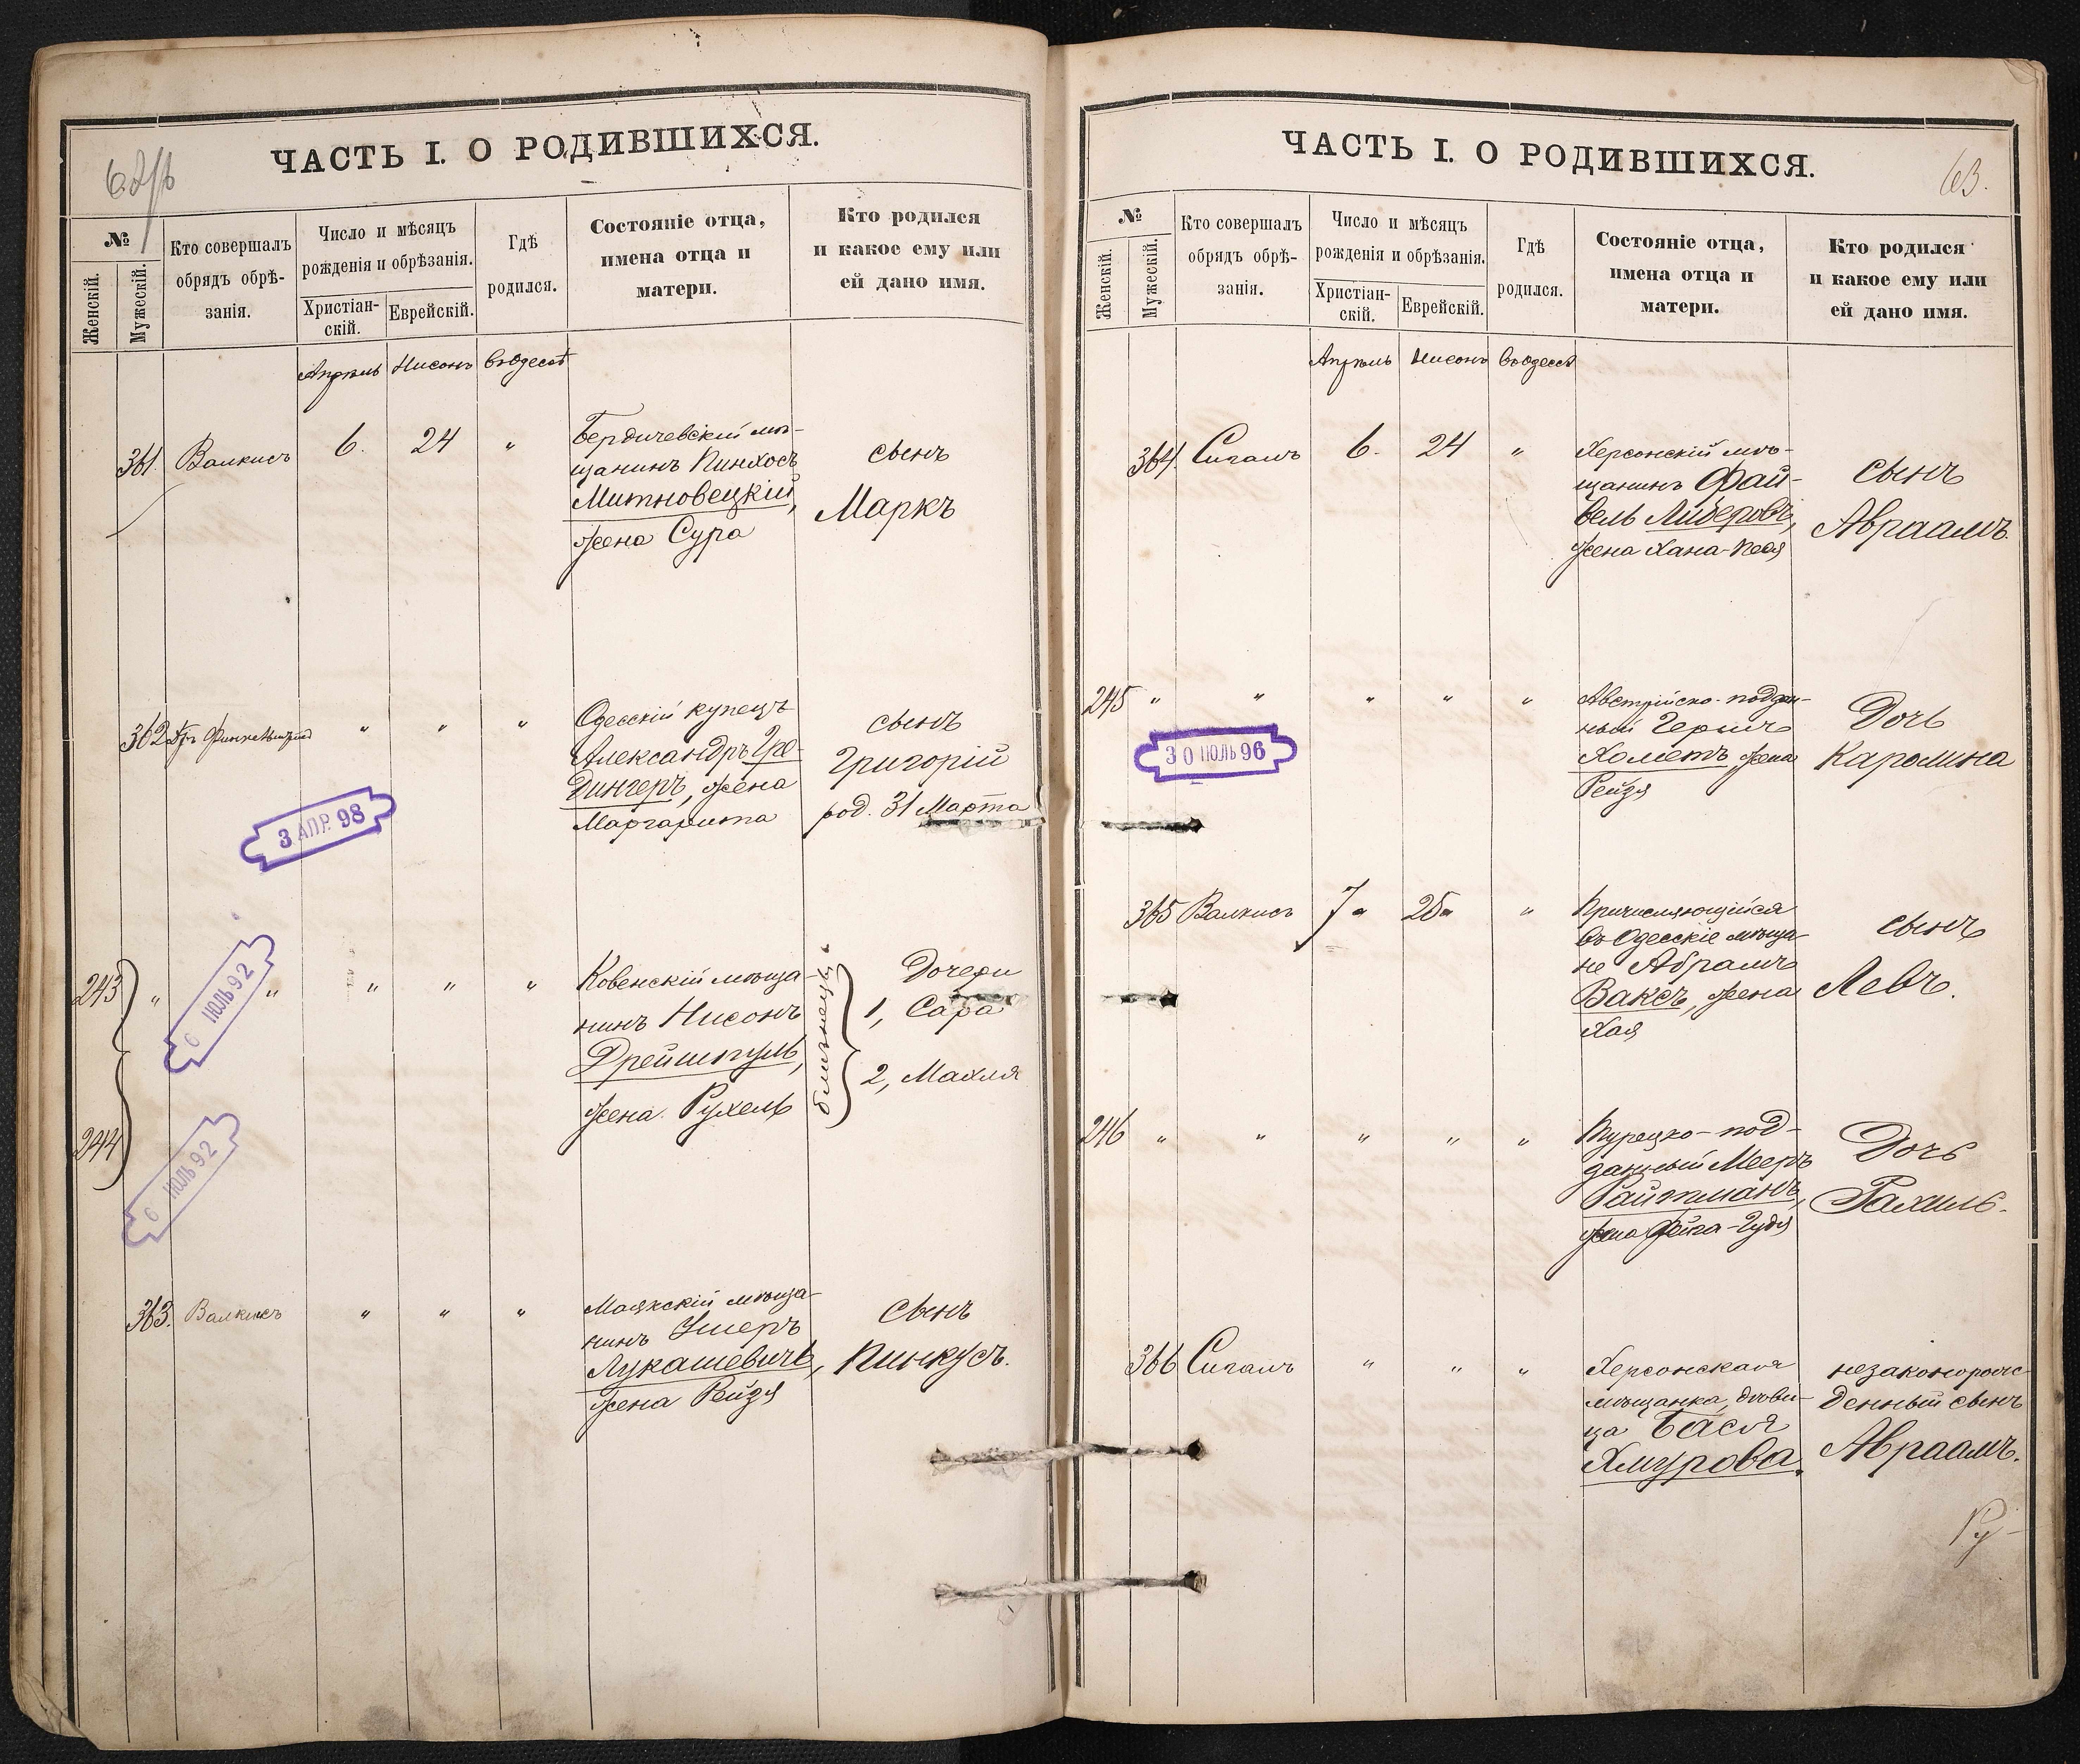 62/об
ЧАСТЬ I. О РОДИВШИХСЯ.
№
Женскій.
Мужескій.
Кто совершалъ
обрядъ обрѣ-
занія.
Число и мѣсяцъ
рожденія и обрѣзанія.
Христіан-
скій.
Еврейскій.
Гдѣ
родился.
Состояніе отца,
имена отца и
матери.
Кто родился
и какое ему или
ей дано имя.
Апрѣль Нисонъ въ Одессѣ
361. Валкисъ 6. 24 "
Бердичевскій мѣ-
щанинъ Пинхосъ
Митновецкій,
жена Сура
сынъ
Маркъ
362 " " "
Одесскій купецъ
Александръ Гре-
дингеръ, жена
Маргарита
сынъ
Григорій
род. 31 Марта
3 АПР. 98
243 " " " " "
244
Ковенскій мѣща-
нинъ Нисонъ
Дрейшпуль,
жена Рухель
близнецы
Дочери
1, Сара
2, Махля
6 ИЮЛЬ 92
6 ИЮЛЬ 92
363. Валкисъ " " "
Маякскій мѣща-
нинъ Ушеръ
Лукашевичъ,
жена Рейзя
сынъ
Пинкусъ.
63.
ЧАСТЬ I. О РОДИВШИХСЯ.
№
Женскій.
Мужескій.
Кто совершалъ
обрядъ обрѣ-
занія.
Число и мѣсяцъ
рожденія и обрѣзанія.
Христіан-
скій.
Еврейскій.
Гдѣ
родился.
Состояніе отца,
имена отца и
матери.
Кто родился
и какое ему или
ей дано имя.
Апрѣль Нисонъ въ Одессѣ
364. Сигалъ 6. 24 "
Херсонскій мѣ-
щанинъ Фай-
вель Либеровъ,
жена Хана-Песя
сынъ
Авраамъ.
245 " " " " "
Австрійско-поддан-
ный Гершъ
Хометъ, жена
Рейзя
Дочь
Каролина
30 ИЮЛЬ 96
365 Валкисъ 7 " 25 " "
Причисляющійся
въ Одесскіе мѣща-
не Абрамъ
Ваксъ, жена
Хая
сынъ
Левъ.
246 " " " " "
Турецко-под-
данный Мееръ
Райтманъ,
жена Фейга-Гудя
Дочь
Рахиль.
366 Сигалъ " " "
Херсонская
мѣщанка, дѣви-
ца Бася
Хмурова.
незаконорож-
денный сынъ
Авраамъ.